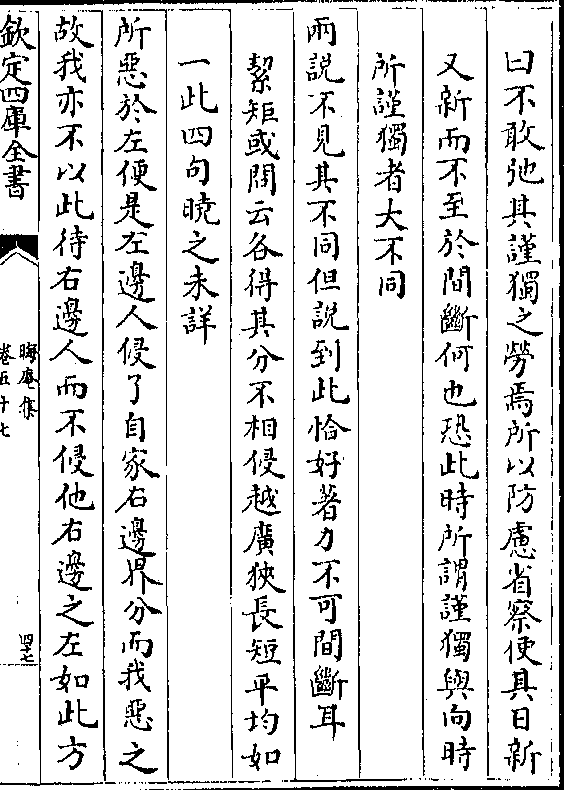 曰不敢弛其謹獨之勞焉所以防慮省察使其日新
又新而不至於間斷何也恐此時所謂謹獨與向時
所謹獨者大不同
兩說不見其不同但說到此恰好著力不可間斷耳
絜矩或問云各得其分不相侵越廣狹長短平均如
一此四句曉之未詳
所惡於左便是左邊人侵了自家右邊界分而我惡之
故我亦不以此待右邊人而不侵他右邊之左如此方
欽定四庫全書
晦庵集
卷五十七
四十七